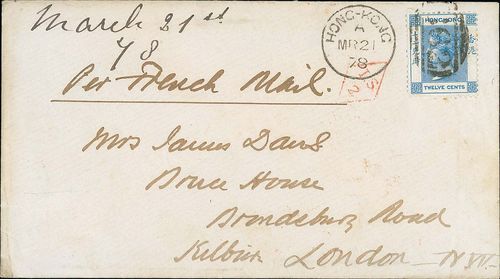 March 21st
78
Per French Mail.
HONG-KONG
A
MR 21
78
HONG KONG
TWELVE CENTS
Mrs James Davis
Bruce House
Brondsbury Road
Kilburn London N W